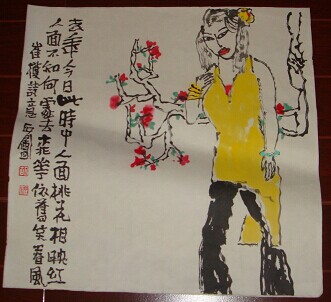 去年今日此時中人面桃花相映红
人面不知何處去桃華依舊笑春風
崔護詩意